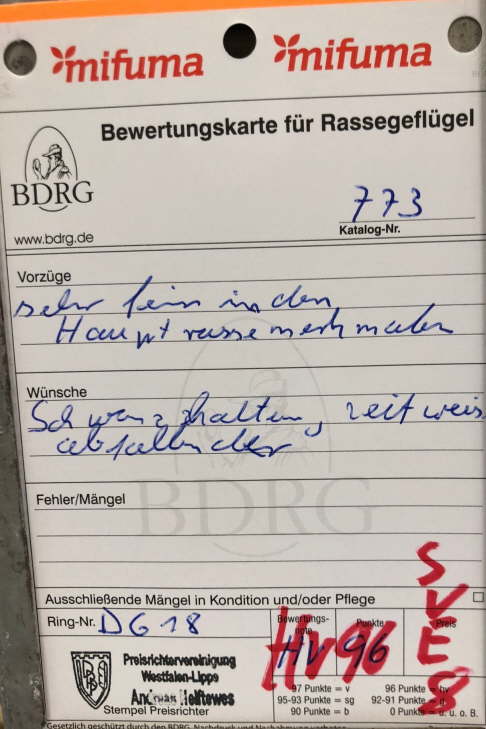 mifuma mifuma
Bewertungskarte für Rassegeflügel
BDRG
773
Katalog-Nr.
www.bdrg.de
Vorzüge
sehr fein in den
Hauptrassemerkmalen
Wünsche
Schwanzhalten, zeitweis
abfallender
BDRG
Fehler/Mängel
Ausschließende Mängel in Kondition und/oder Pflege
Ring-Nr. DG 18
Bewertungs-
note
Punkte
Preis
HV 96
Hv 96
SVE8
Preisrichtervereinigung
Westfalen-Lippe
Andreas
Stempel Preisrichter
97 Punkte = v 96 Punkte = hv
95-93 Punkte = sg 92-91 Punkte = g
90 Punkte = b 0 Punkte = u. u. o. B.
Gesetzlich geschützt durch den BDRG, Nachdruck und Nachahmung verboten